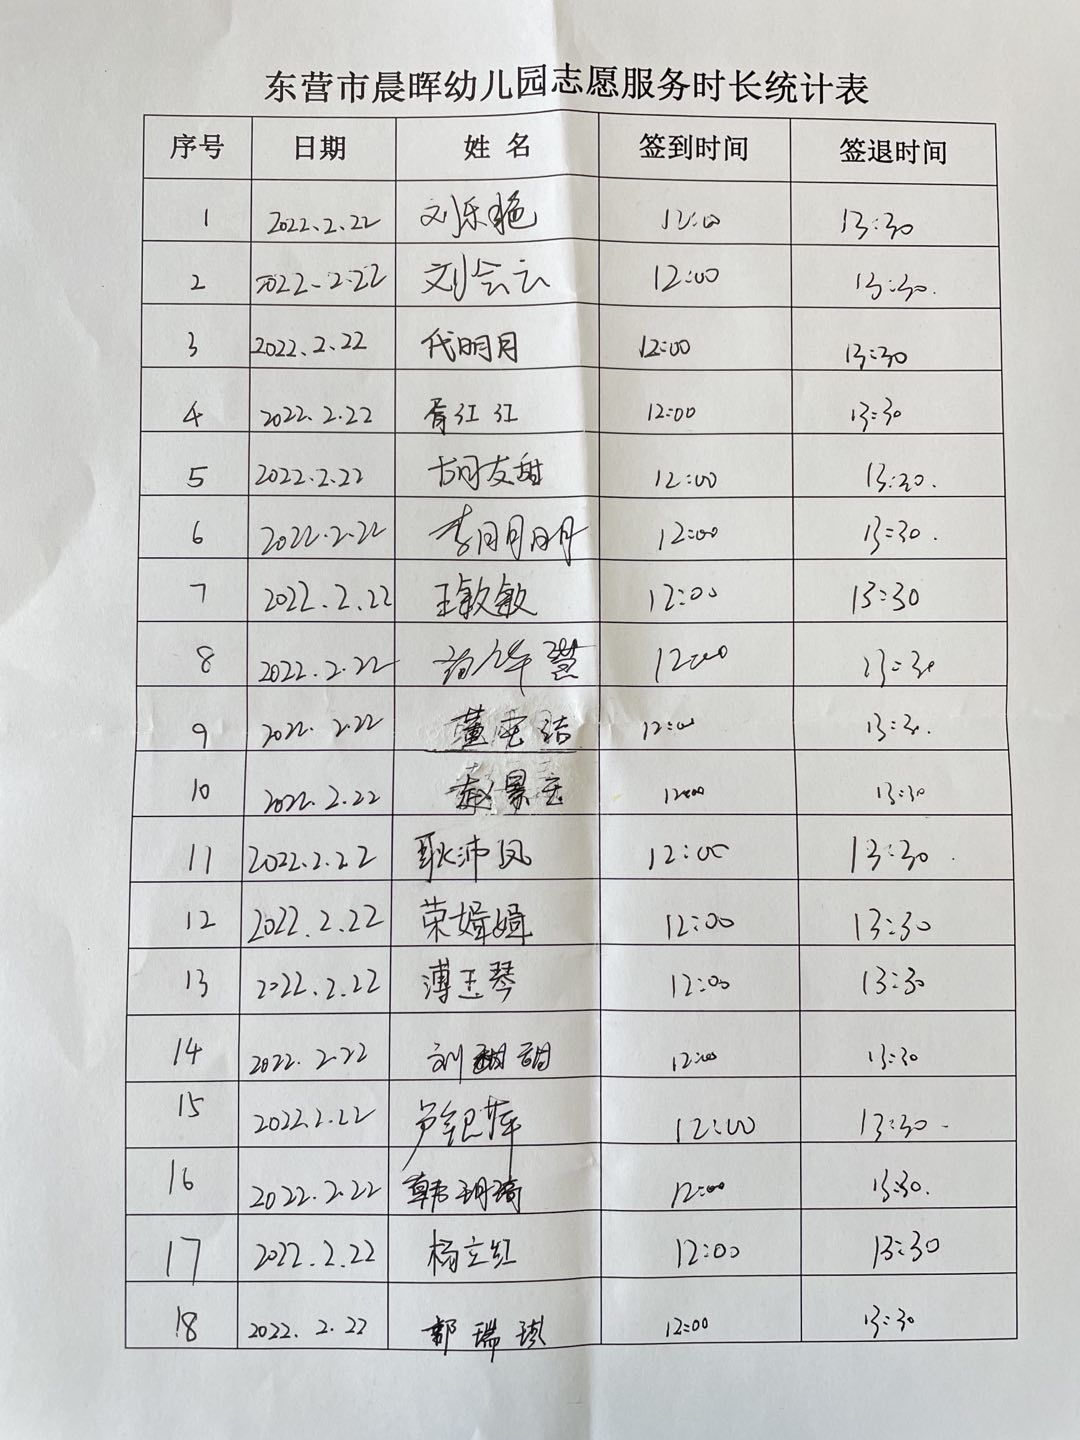 东营市晨晖幼儿园志愿服务时长统计表
序号 日期 姓名 签到时间 签退时间
1 2022.2.22 刘乐艳 12:00 13:30
2 2022.2.22 刘会云 12:00 13:30.
3 2022.2.22 代明月 12:00 13:30
4 2022.2.22 胥江江 12:00 13:30
5 2022.2.22 胡友甜 12:00 13:30.
6 2022.2.22 李明明 12:00 13:30.
7 2022.2.22 王敏敏 12:00 13:30
8 2022.2.22 12:00 13:30
9 2022.2.22 董 洁 12:00 13:30.
10 2022.2.22 赵景玉 12:00 13:30
11 2022.2.22 耿沛凤 12:00 13:30.
12 2022.2.22 荣婧婧 12:00 13:30
13 2022.2.22 薄玉琴 12:00 13:30
14 2022.2.22 刘甜甜 12:00 13:30
15 2022.2.22 芦银萍 12:00 13:30.
16 2022.2.22 韩玥琦 12:00 13:30.
17 2022.2.22 杨立红 12:00 13:30
18 2022.2.22 郭瑞 12:00 13:30